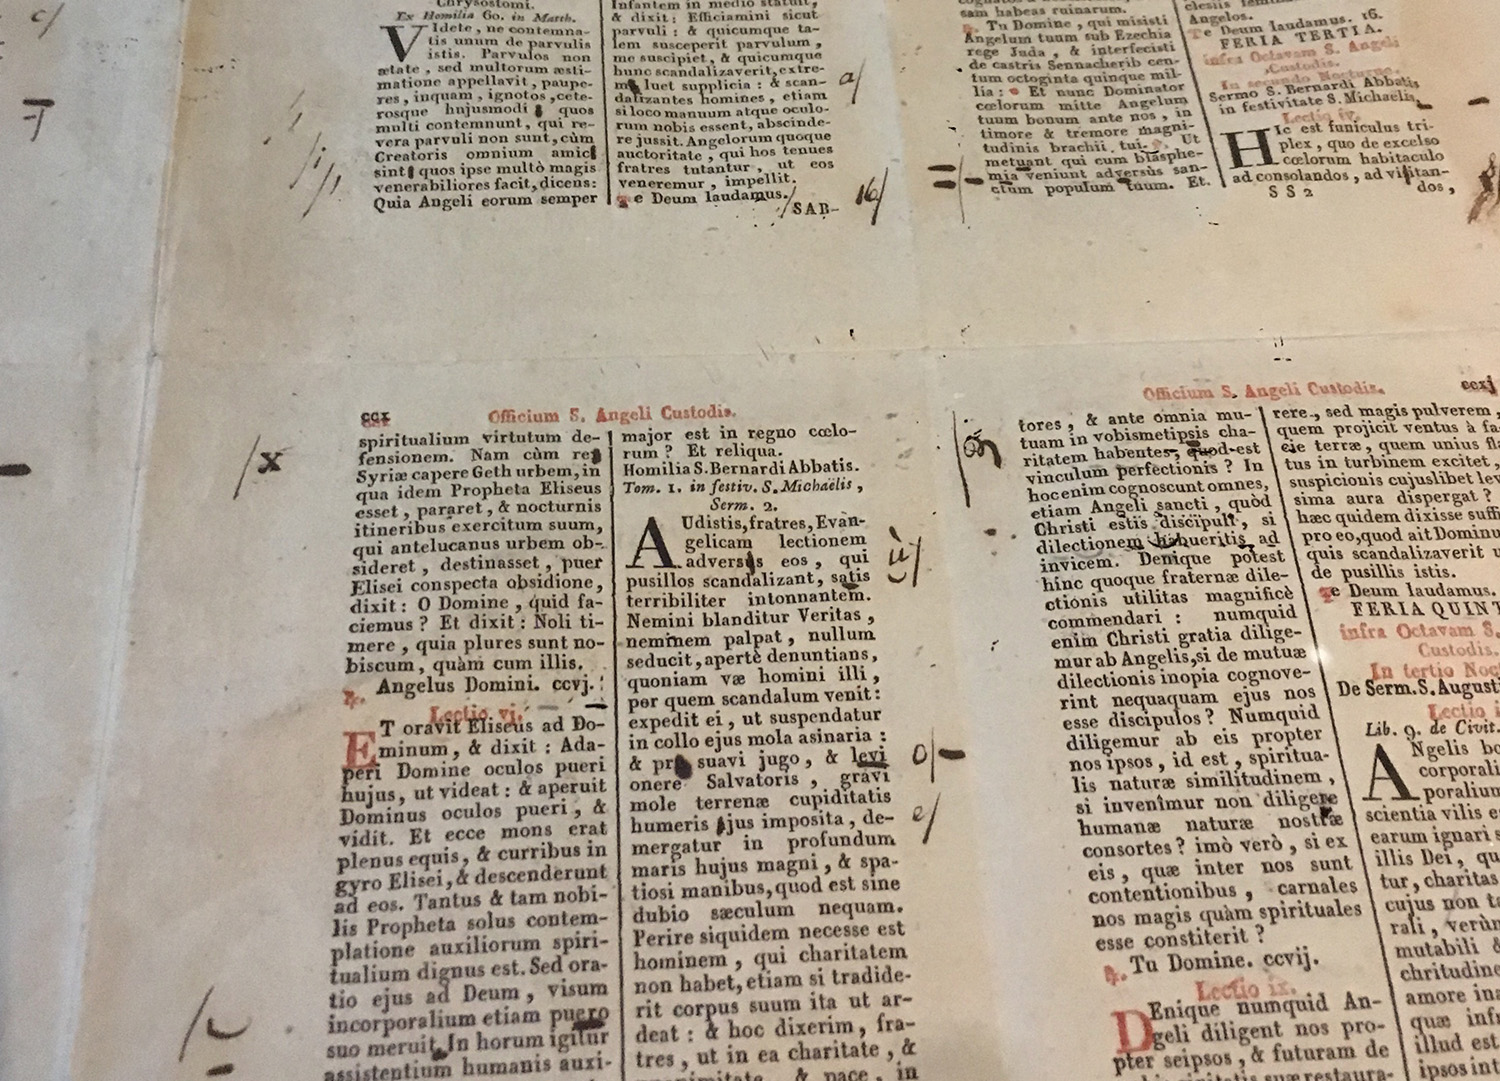 Chrysostomi.
Ex Homilia 60. in Matth.
VIdete, ne contemna-
tis unum de parvulis
istis. Parvulos non
ætate, sed multorum æsti-
matione appellavit, paupe-
res, inquam, ignotos, cete-
rosque hujusmodi quos
multi contemnunt, qui re-
vera parvuli non sunt, cùm
Creatoris omnium amici
sint quos ipse multò magis
venerabiliores facit, dicens:
Quia Angeli eorum semper
Infantem in medio statuit,
& dixit: Efficiamini sicut
parvuli: & quicumque ta-
lem susceperit parvulum,
me suscipiet, & quicumque
hunc scandalizaverit, extre-
ma luet supplicia: & scan-
dalizantes homines, etiam
si loco manuum atque oculo-
rum nobis essent, abscinde-
re jussit. Angelorum quoque
auctoritate, qui hos tenues
fratres tutantur, ut eos
veneremur, impellit.
Te Deum laudamus.
SAB-
a/
16/
sam habeas ruinarum.
Tu Domine, qui misisti
Angelum tuum sub Ezechia
rege Juda, & interfecisti
de castris Sennacherib cen-
tum octoginta quinque mil-
lia: Et nunc Dominator
cœlorum mitte Angelum
tuum bonum ante nos, in
timore & tremore magni-
tudinis brachii tui. Ut
metuant qui cum blasphe-
mia veniunt adversùs san-
ctum populum tuum. Et.
Angelos.
Te Deum laudamus. 16.
FERIA TERTIA.
infra Octavam S. Angeli
Custodis.
In secundo Nocturno.
Sermo S. Bernardi Abbatis
in festivitate S. Michaelis.
Lectio iv.
HIc est funiculus tri-
plex, quo de excelso
cœlorum habitaculo
ad consolandos, ad visitan-
S S 2 dos,
ccx Officium S. Angeli Custodis.
spiritualium virtutum de-
fensionem. Nam cùm rex
Syriæ capere Geth urbem, in
qua idem Propheta Eliseus
esset, pararet, & nocturnis
itineribus exercitum suum,
qui antelucanus urbem ob-
sideret, destinasset, puer
Elisei conspecta obsidione,
dixit: O Domine, quid fa-
ciemus? Et dixit: Noli ti-
mere, quia plures sunt no-
biscum, quàm cum illis.
℟. Angelus Domini. ccvj.
Lectio vj.
ET oravit Eliseus ad Do-
minum, & dixit: Ada-
peri Domine oculos pueri
hujus, ut videat: & aperuit
Dominus oculos pueri, &
vidit. Et ecce mons erat
plenus equis, & curribus in
gyro Elisei, & descenderunt
ad eos. Tantus & tam nobi-
lis Propheta solus contem-
platione auxiliorum spiri-
tualium dignus est. Sed ora-
tio ejus ad Deum, visum
incorporalium etiam puero
suo meruit. In horum igitur
assistentium humanis auxi-
/x
major est in regno cœlo-
rum? Et reliqua.
Homilia S. Bernardi Abbatis.
Tom. 1. in festiv. S. Michaëlis,
Serm. 2.
AUdistis, fratres, Evan-
gelicam lectionem
adversùs eos, qui
pusillos scandalizant, satis
terribiliter intonnantem.
Nemini blanditur Veritas,
neminem palpat, nullum
seducit, apertè denuntians,
quoniam væ homini illi,
per quem scandalum venit:
expedit ei, ut suspendatur
in collo ejus mola asinaria:
& pro suavi jugo, & levi
onere Salvatoris, gravi
mole terrenæ cupiditatis
humeris ejus imposita, de-
mergatur in profundum
maris hujus magni, & spa-
tiosi manibus, quod est sine
dubio sæculum nequam.
Perire siquidem necesse est
hominem, qui charitatem
non habet, etiam si tradide-
rit corpus suum ita ut ar-
deat: & hoc dixerim, fra-
tres, ut in ea charitate, &
& pace, in
ù/
o/
e/
Officium S. Angeli Custodis. ccxj
tores, & ante omnia mu-
tuam in vobismetipsis cha-
ritatem habentes, quod est
vinculum perfectionis? In
hoc enim cognoscunt omnes,
etiam Angeli sancti, quòd
Christi estis discipuli, si
dilectionem habueritis ad
invicem. Denique potest
hinc quoque fraternæ dile-
ctionis utilitas magnificè
commendari: numquid
enim Christi gratia dilige-
mur ab Angelis, si de mutuæ
dilectionis inopia cognove-
rint nequaquam ejus nos
esse discipulos? Numquid
diligemur ab eis propter
nos ipsos, id est, spiritua-
lis naturæ similitudinem,
si invenimur non diligere
humanæ naturæ nostræ
consortes? imò verò, si ex
eis, quæ inter nos sunt
contentionibus, carnales
nos magis quàm spirituales
esse constiterit?
℟. Tu Domine. ccvij.
Lectio ix.
DEnique numquid An-
geli diligent nos pro-
pter seipsos, & futuram de
rere, sed magis pulverem,
quem projicit ventus à fa-
cie terræ, quem unius fla
tus in turbinem excitet,
suspicionis cujuslibet lev
sima aura dispergat?
hæc quidem dixisse suffi
pro eo, quod ait Dominu
quis scandalizaverit u
de pusillis istis.
Te Deum laudamus.
FERIA QUINT
infra Octavam S.
Custodis.
In tertio Noc
De Serm. S. August
Lectio
Lib. 9. de Civit.
ANgelis bo
corporali
poralium
scientia vilis e
earum ignari s
illis Dei, qu
tur, charitas
cujus non ta
rali, verùm
mutabili &
chritudine
amore ina
quæ inf
illud est
ipsos int